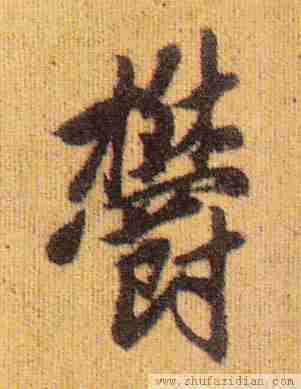 欝
www.shufazidian.com